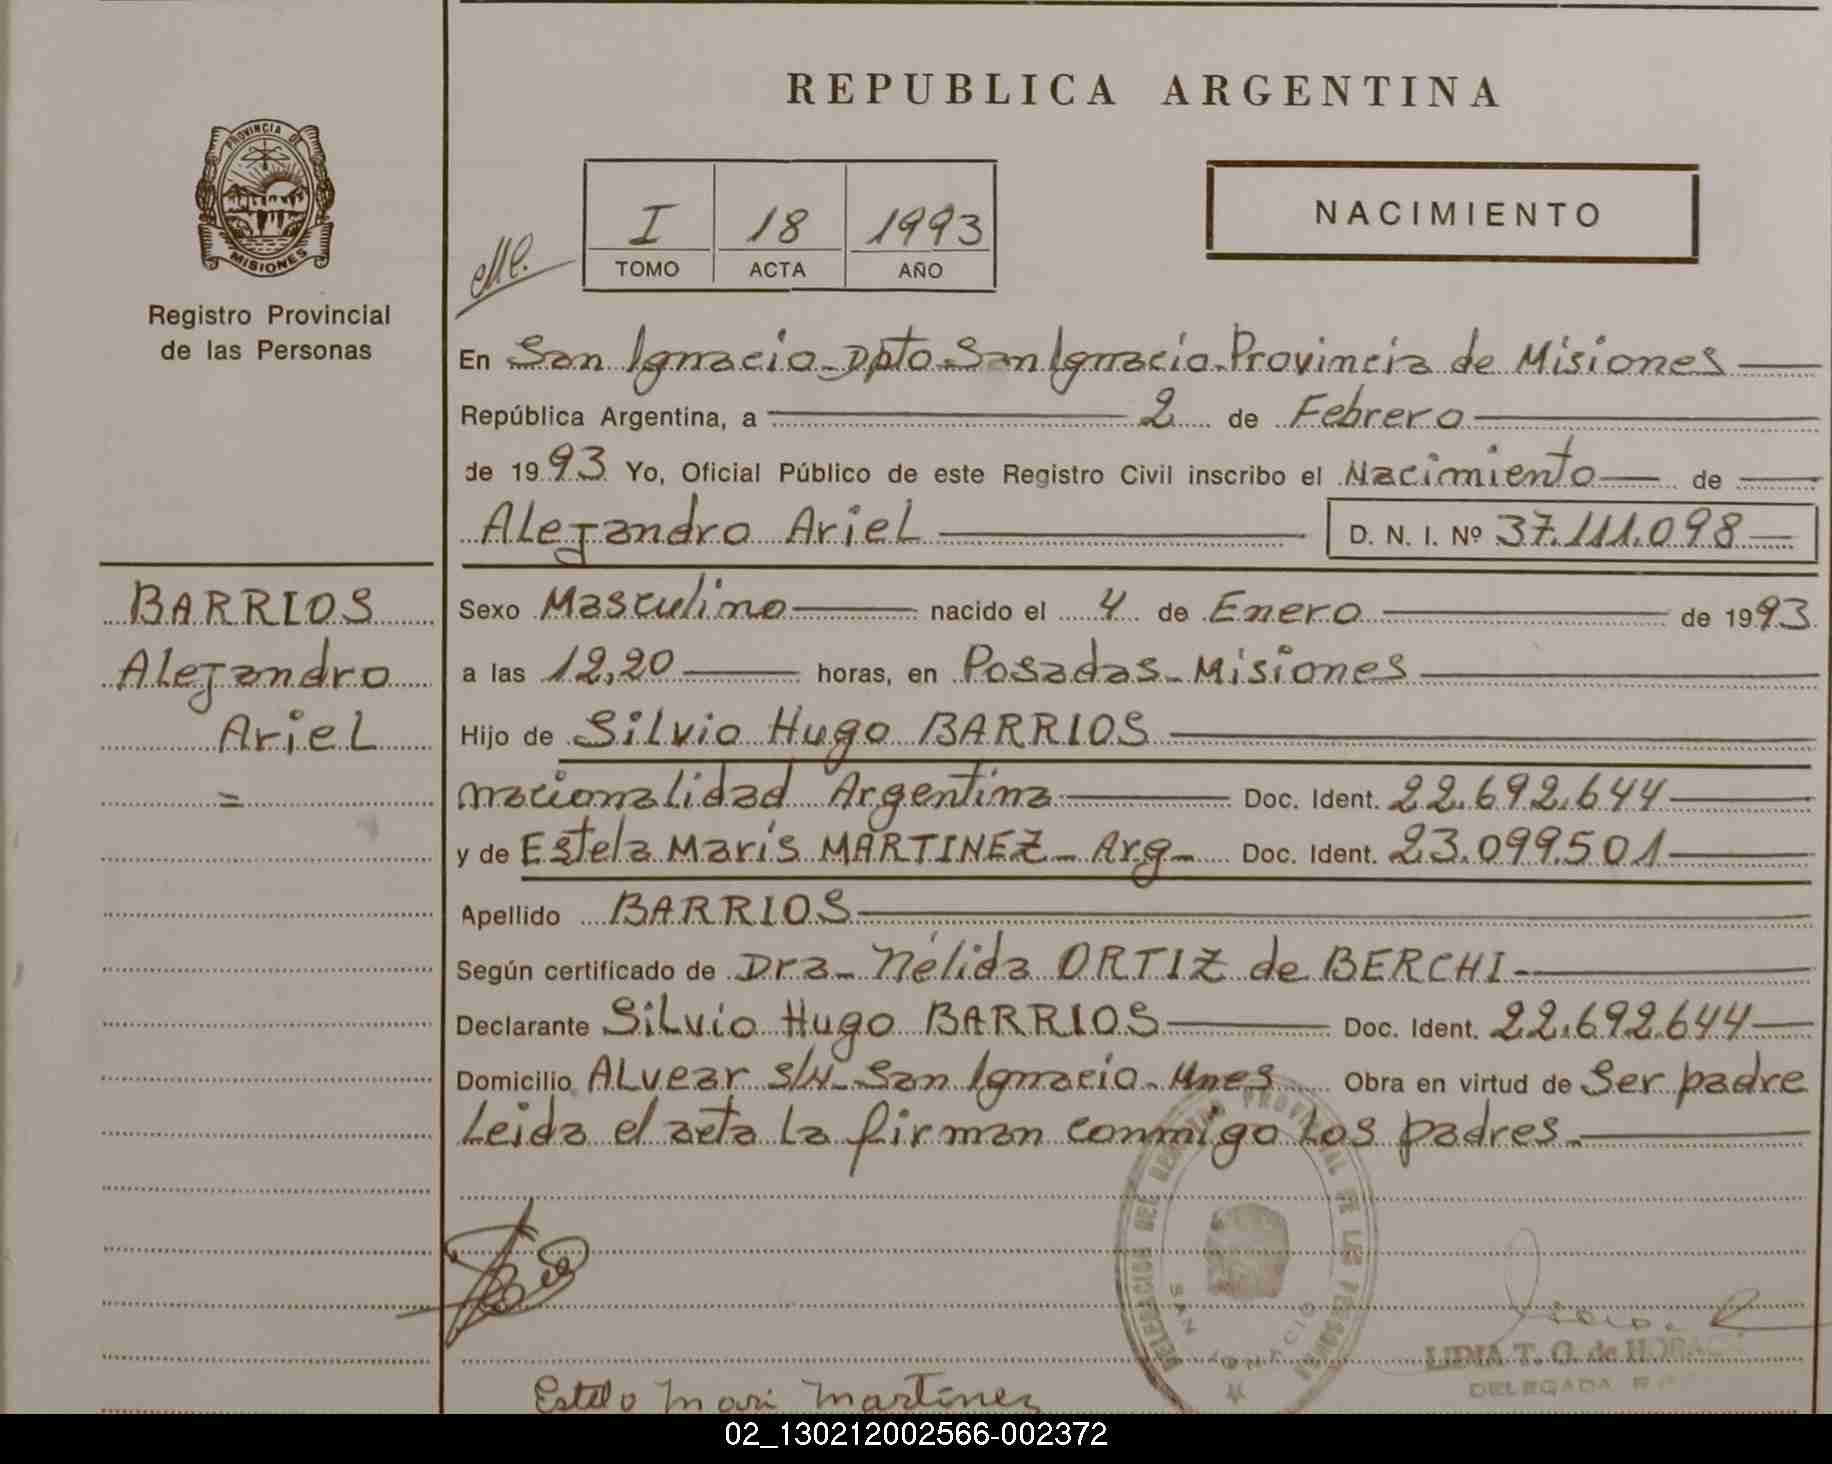 REPUBLICA ARGENTINA
PROVINCIA DE
MISIONES
Registro Provincial
de las Personas
I 18 1993
TOMO ACTA AÑO
NACIMIENTO
En San Ignacio-Dpto-San Ignacio-Provincia de Misiones
República Argentina, a 2 de Febrero
de 1993 Yo, Oficial Público de este Registro Civil inscribo el Nacimiento de
Alejandro Ariel D. N. I. Nº 37.111.098
BARRIOS
Alejandro
Ariel
=
Sexo Masculino nacido el 4 de Enero de 1993
a las 12,20 horas, en Posadas-Misiones
Hijo de Silvio Hugo BARRIOS
nacionalidad Argentina Doc. Ident. 22.692.644
y de Estela Maris MARTINEZ- Arg- Doc. Ident. 23.099.501
Apellido BARRIOS
Según certificado de Dra- Nélida ORTIZ de BERCHI-
Declarante Silvio Hugo BARRIOS Doc. Ident. 22.692.644
Domicilio ALvear s/N- San Ignacio- Mnes Obra en virtud de Ser padre
Leida el acta la firman conmigo los padres-
DELEGACION DEL REGISTRO PROVINCIAL DE LAS PERSONAS
SAN IGNACIO
LIDIA T. G. de
DELEGADA
Estela Mari Martínez
02_130212002566-002372